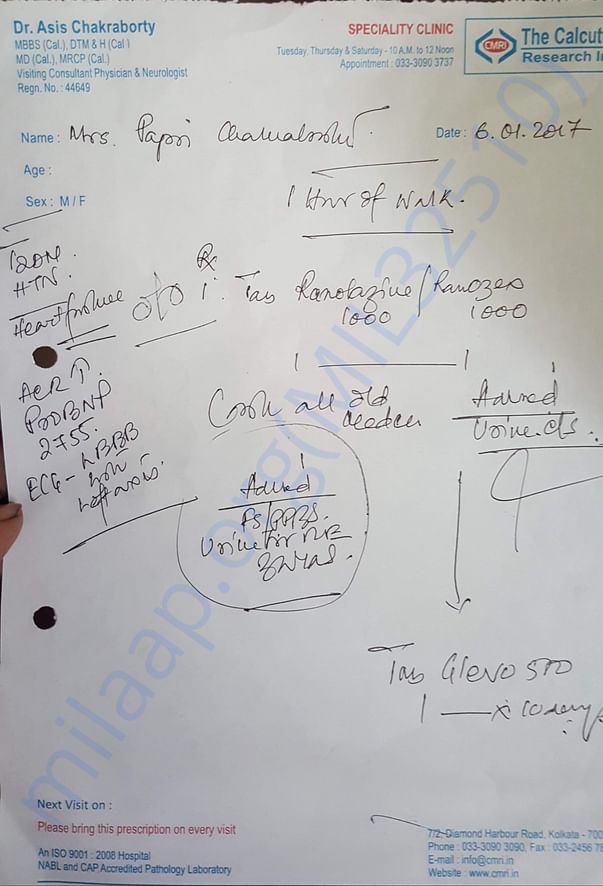 Dr. Asis Chakraborty
MBBS (Cal.), DTM & H (Cal )
MD (Cal.), MRCP (Cal.)
Visiting Consultant Physician & Neurologist
Regn. No. : 44649
SPECIALITY CLINIC
Tuesday, Thursday & Saturday - 10 A.M. to 12 Noon
Appointment : 033-3090 3737
CMRI
The Calcut
Research In
Name : Mrs. Papri
Date : 6.01.2017
Age :
Sex : M / F
1 Hour of Walk.
HTN.
Heart failure
Rx
1. Tab Ranolazine / Ranozex
1000 1000
1 1
ACR ↑.
PROBNP
2755.
ECG - LBBB
Left axis.
all old
Advised
Urine c/s.
Advised
FS/PPBS.
Urine for R/E
Tab Glevo 500
1 x 10 days
milaap.org(MIL32510)
Next Visit on :
Please bring this prescription on every visit
An ISO 9001 : 2008 Hospital
NABL and CAP Accredited Pathology Laboratory
7/2, Diamond Harbour Road, Kolkata - 700
Phone : 033-3090 3090, Fax : 033-2456 78
E-mail : info@cmri.in
Website : www.cmri.in